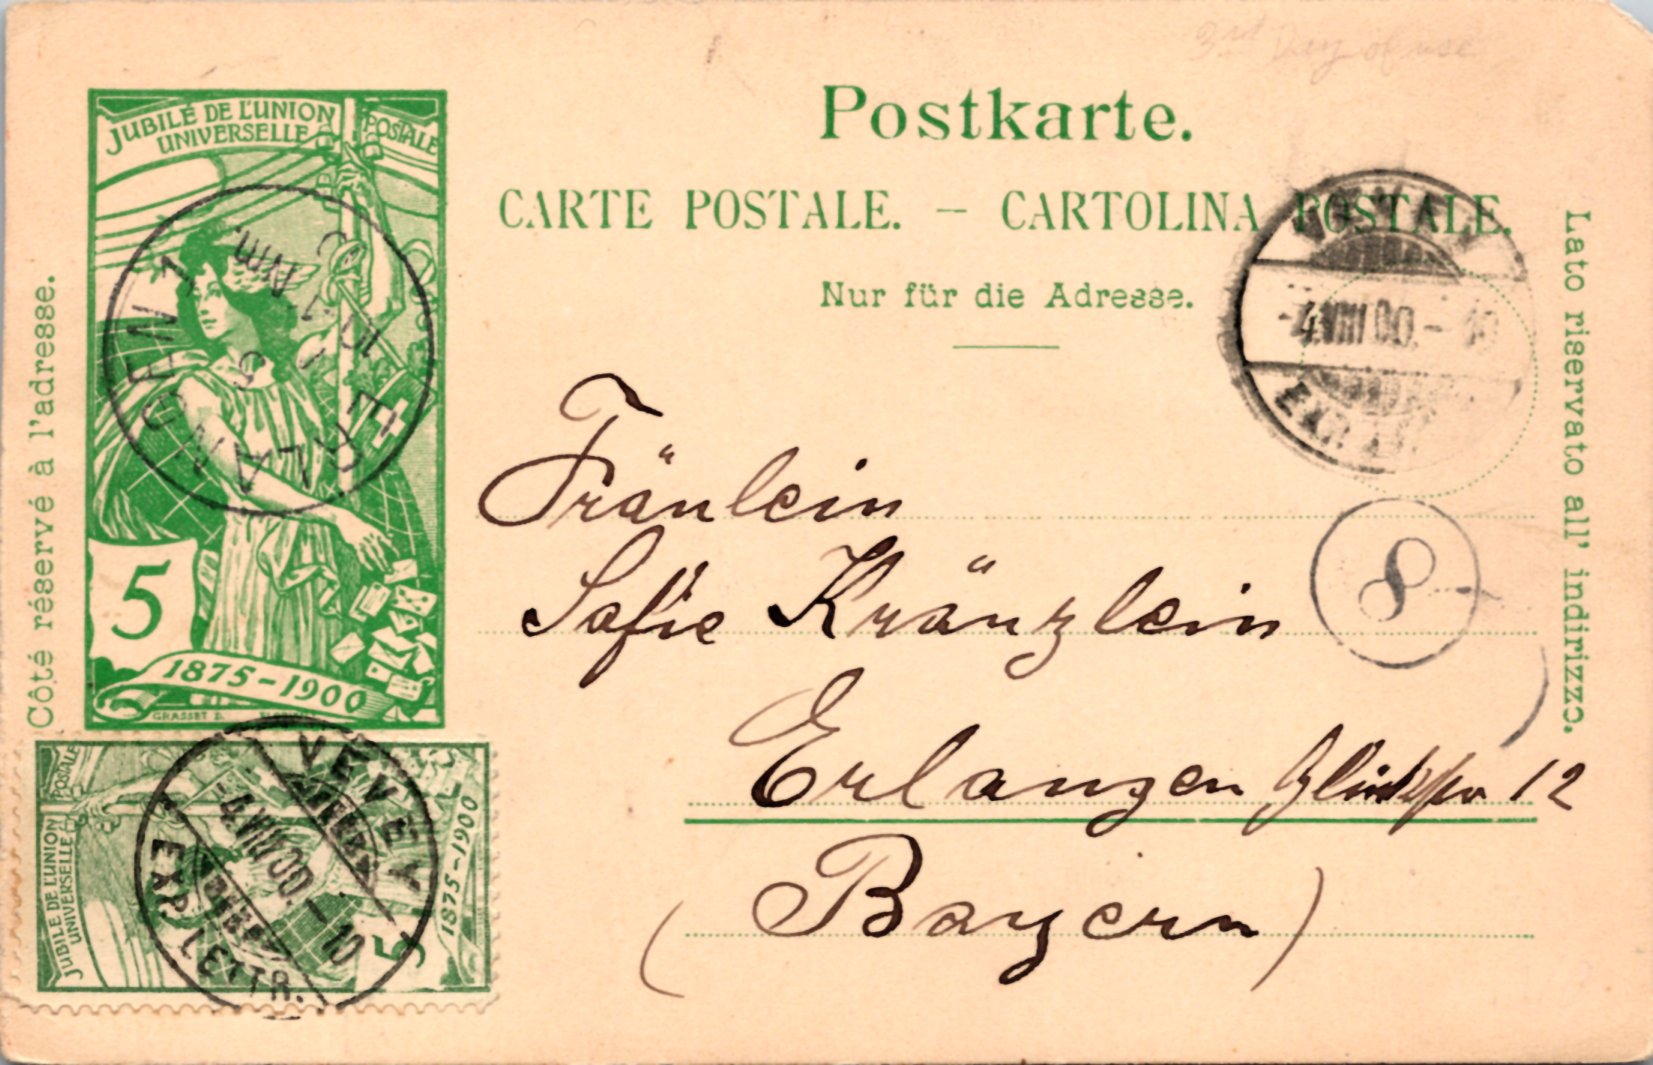 3rd Day of use
JUBILÉ DE L'UNION POSTALE
UNIVERSELLE
5
1875-1900
GRASSET D.
ERLANGEN 1
5
10-11 Nm.
Postkarte.
CARTE POSTALE. – CARTOLINA POSTALE.
Nur für die Adresse.
Côté réservé à l'adresse.
Lato riservato all' indirizzo.
VEVEY
-4.VIII 00.-10
EXP. LETTR.
8
Fräulein
Sofie Kränzlein
Erlangen 12
(Bayern)
JUBILÉ DE L'UNION POSTALE
UNIVERSELLE
5
1875-1900
VEVEY
4.VIII 00.-10
EXP. LETTR.